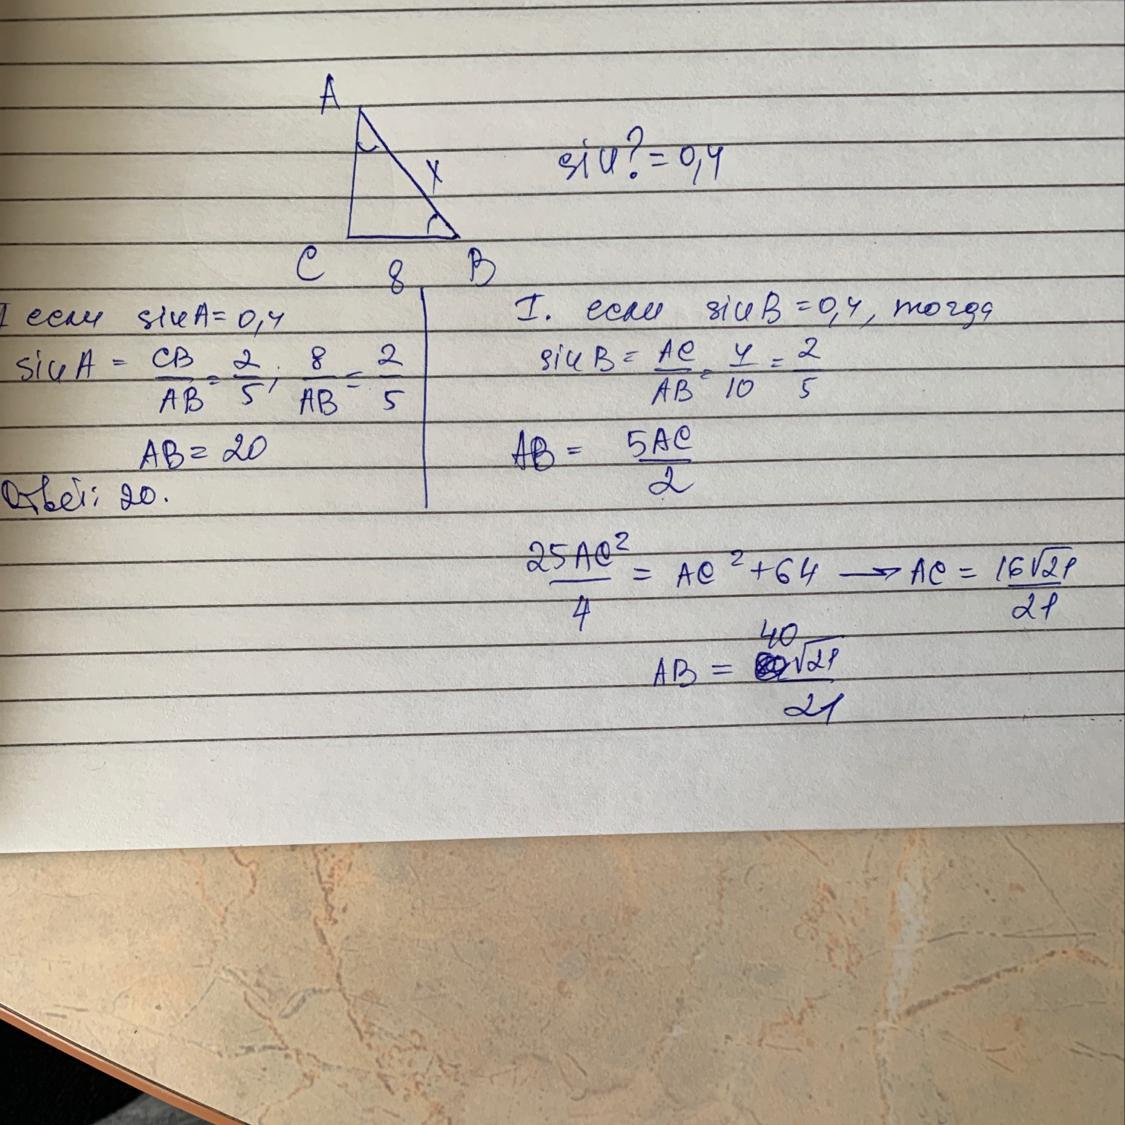 A
x
sin? = 0,4
C
8
B
I если sinA = 0,4
sin A = CB/AB = 2/5; 8/AB = 2/5
AB = 20
Ответ: 20.
I. если sinB = 0,4, тогда
sin B = AC/AB = 4/10 = 2/5
AB = 5AC/2
25AC²/4 = AC² + 64 → AC = 16√21/21
AB = 40√21/21